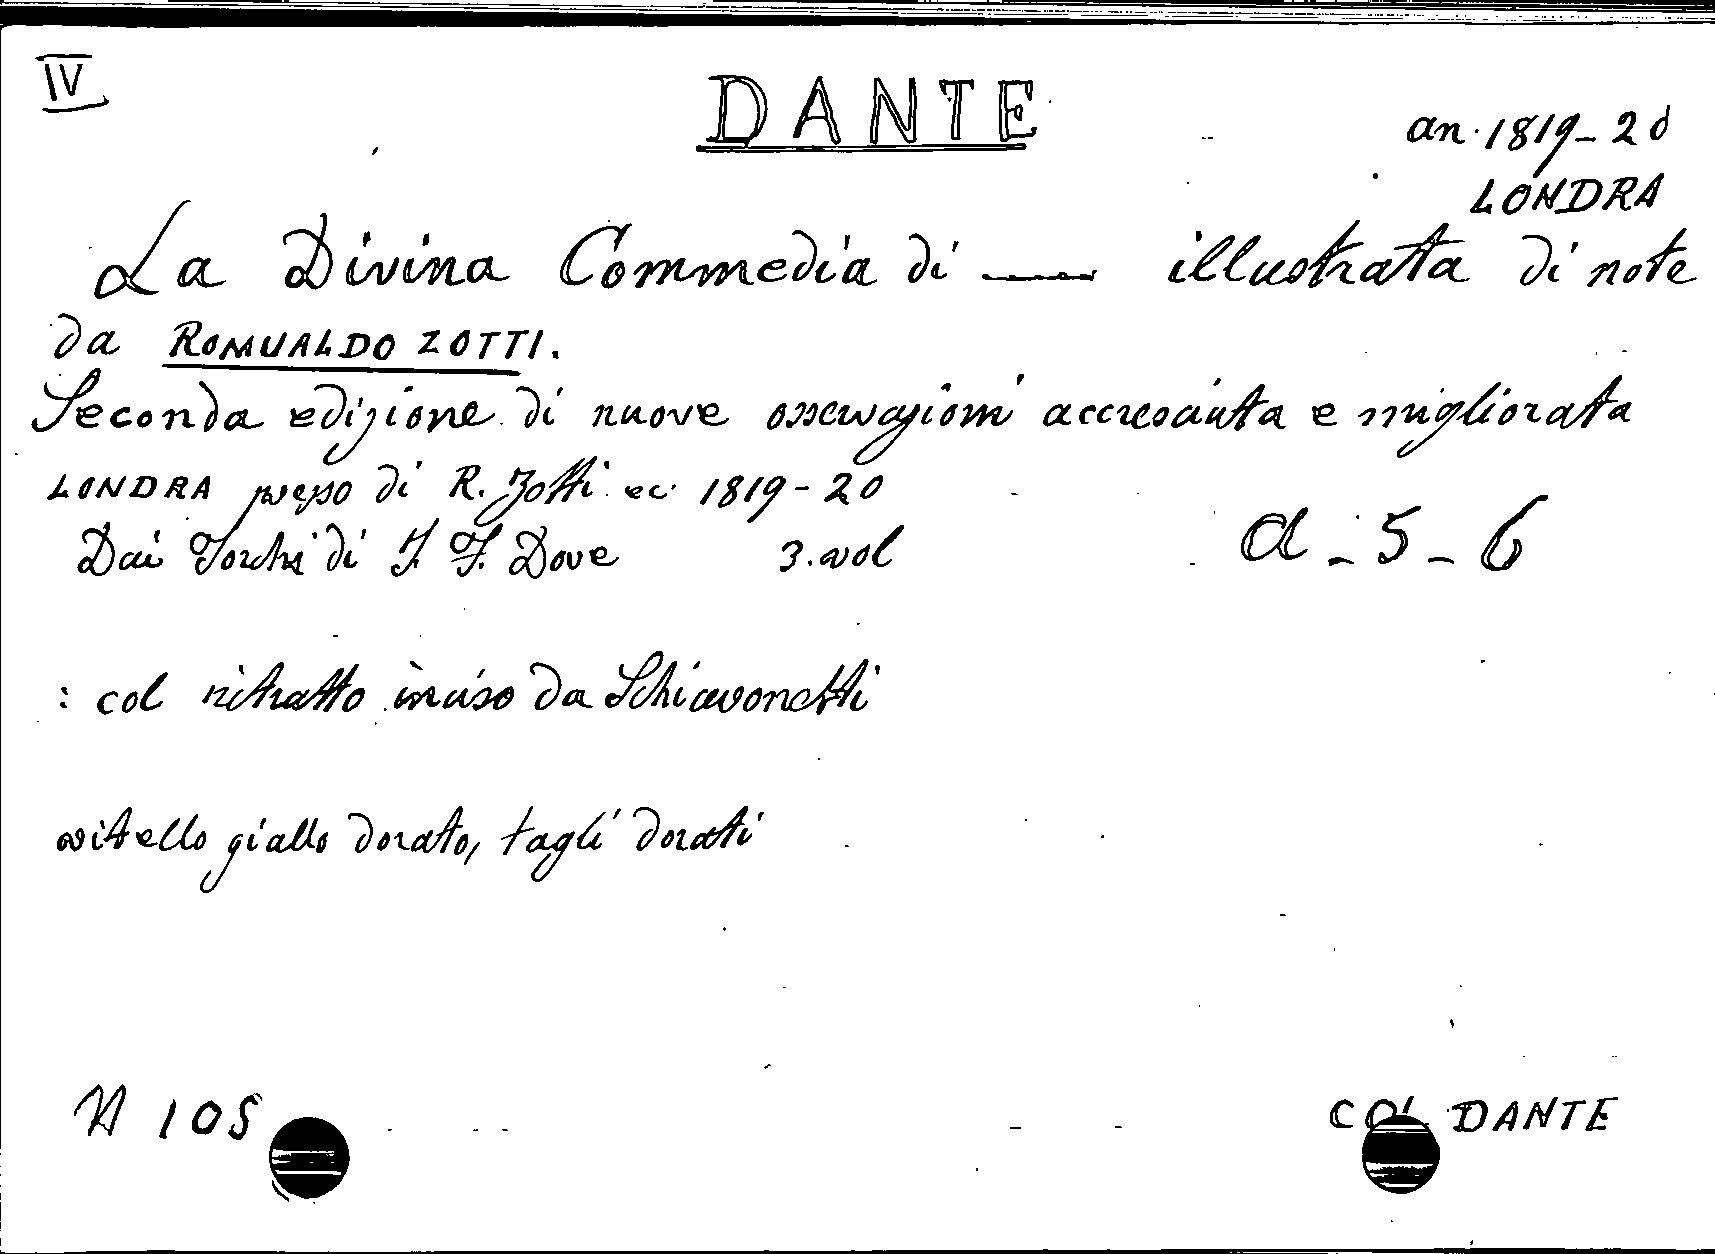 IV
DANTE
an. 1819-20
LONDRA
La Divina Commedia di —— illustrata di note
da ROMUALDO ZOTTI.
Seconda edizione di nuove osservazioni accresciuta e migliorata
LONDRA presso di R. Zotti ec. 1819-20
Dai Torchi di J. F. Dove 3. vol
a-5-6
: col ritratto inciso da Schiavonetti
vitello giallo dorato, tagli dorati
N 105
COL DANTE